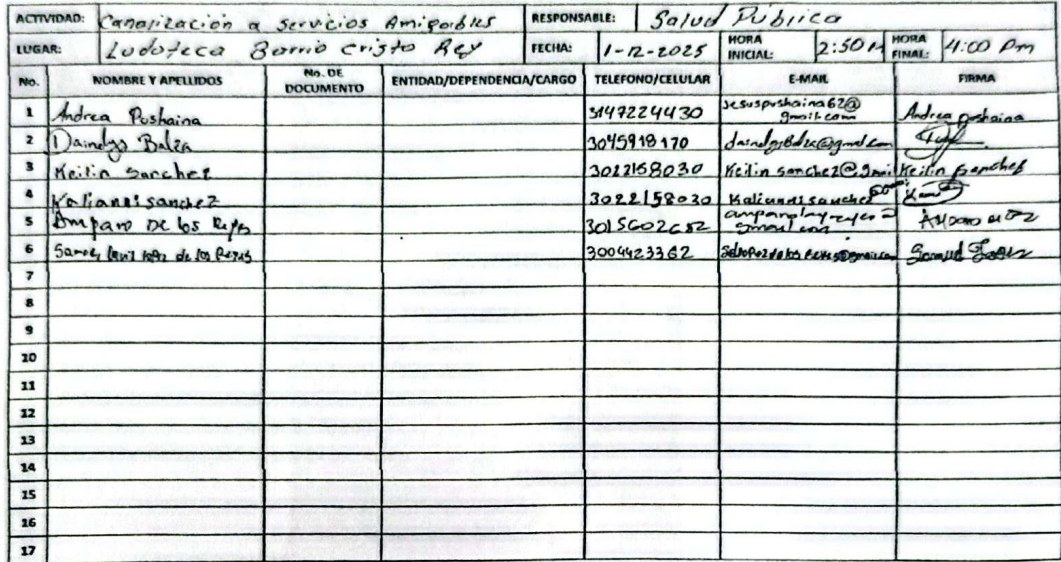 ACTIVIDAD: Canalización a Servicios Amigables RESPONSABLE: Salud Publica
LUGAR: Ludoteca Barrio Cristo Rey FECHA: 1-12-2025 HORA INICIAL: 2:50 HORA FINAL: 4:00 Pm
No. NOMBRE Y APELLIDOS No. DE DOCUMENTO ENTIDAD/DEPENDENCIA/CARGO TELEFONO/CELULAR E-MAIL FIRMA
1 Andrea Pushaina 3147224430 jesuspushaina62@gmail.com Andrea Pushaina
2 Balza 3045918170
3 Keilin Sanchez 3022158030 Keilin Sanchez@gmail Keilin Sanchez
4 Kalianni sanchez 3022158030 Kalianni sanchez
5 Amparo De los Reyes 3015602682
6 de los Reyes 3004423362
7
8
9
10
11
12
13
14
15
16
17